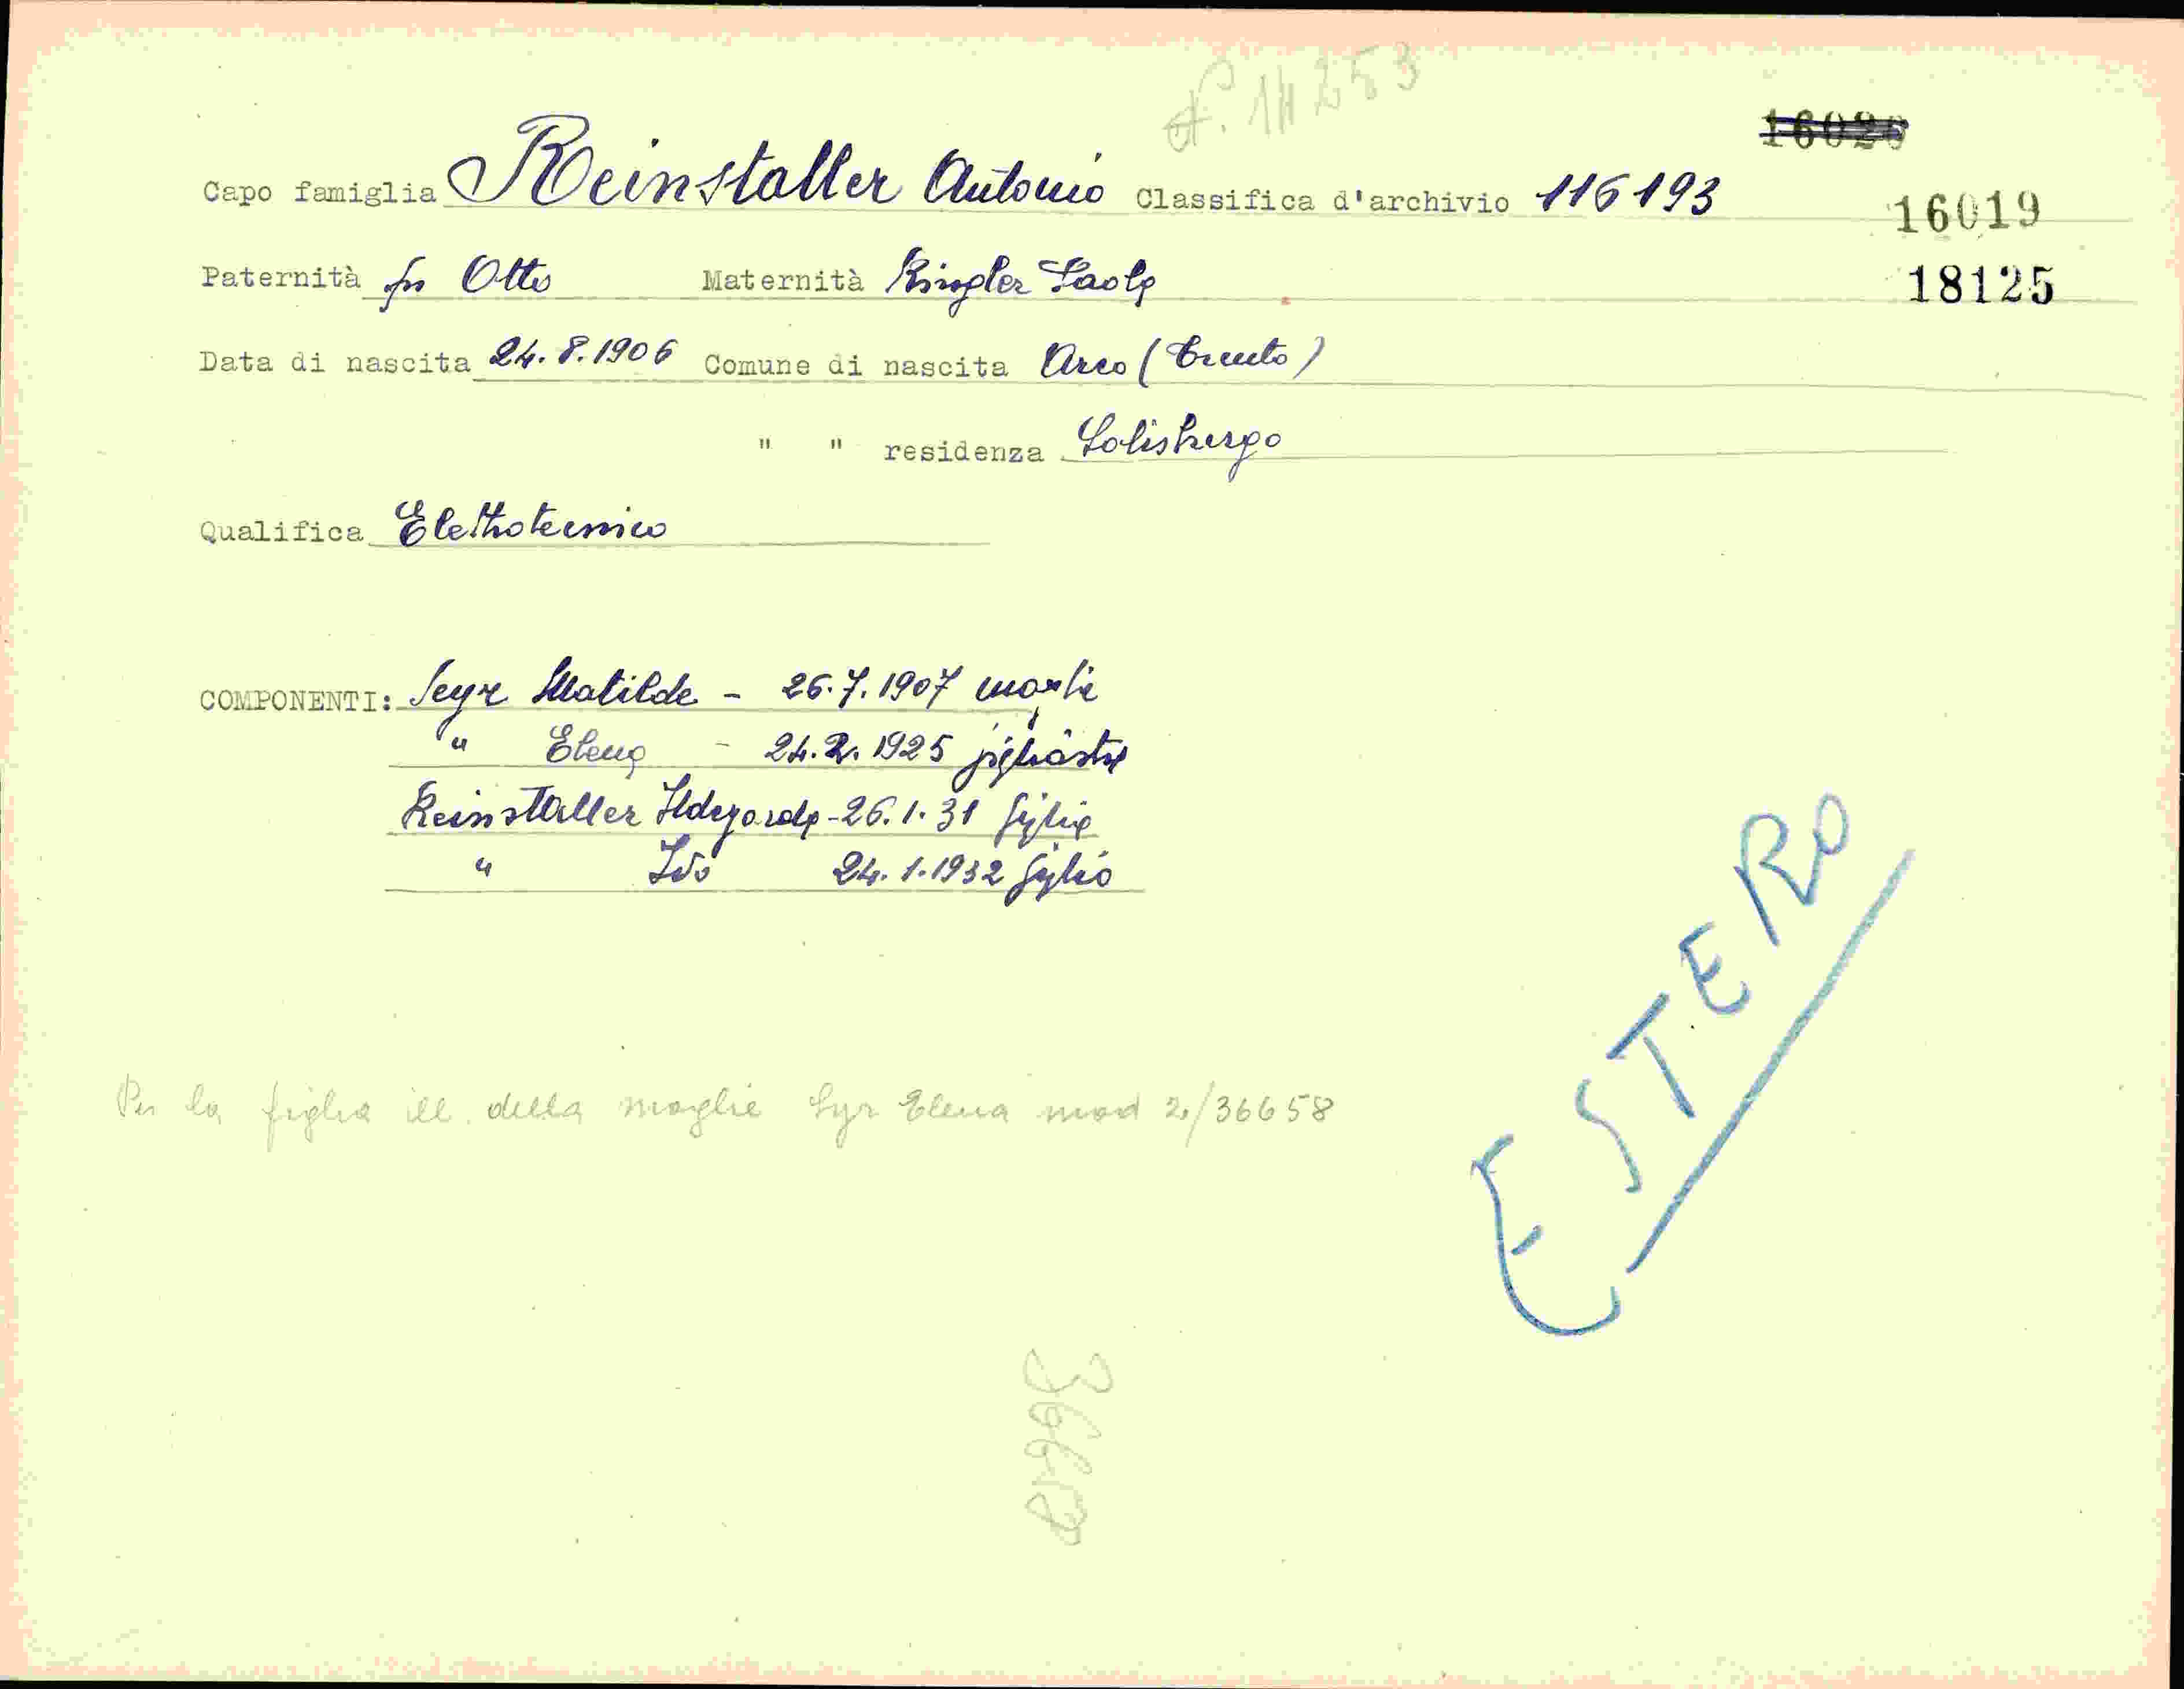 A. 11253
16026
Capo famiglia Reinstaller Antonio Classifica d'archivio 116193
16019
Paternità fu Otto Maternità Ringler Paola
18125
Data di nascita 24.8.1906 Comune di nascita Arco (Trento)
" " residenza Salisburgo
Qualifica Elettrotecnico
COMPONENTI: Seyr Matilde - 26.7.1907 moglie
" Elena - 24.2.1925 figliastra
Reinstaller Ildegarda - 26.1.31 figlia
" Ivo 24.1.1932 figlio
ESTERO
Per la figlia ill. della moglie Syr Elena mod 2/36658